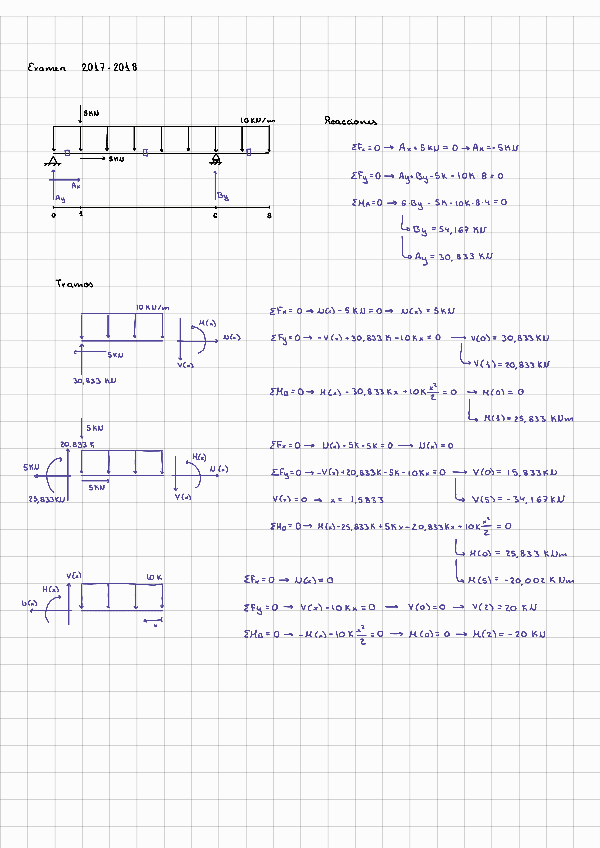 Examen 2017-2018
5KN
10 KN/m
Reacciones
5KN
Ax
Ay
By
0 1 6 8
ΣFx=0 → Ax+5KN=0 → Ax=-5KN
ΣFy=0 → Ay+By-5K-10K·8=0
ΣMA=0 → 6·By-5K-10K·8·4=0
By=54,167 KN
Ay=30,833 KN
Tramos
10 KN/m
M(x)
N(x)
5KN
V(x)
30,833 KN
ΣFx=0 → N(x)-5KN=0 → N(x)=5KN
ΣFy=0 → -V(x)+30,833K-10Kx=0 → V(0)=30,833KN
V(1)=20,833KN
ΣMD=0 → M(x)-30,833Kx+10K x²/2=0 → M(0)=0
M(1)=25,833 KNm
5KN
20,833 K
5KN
M(x)
N(x)
5KN
V(x)
25,833KN
ΣFx=0 → N(x)+5K-5K=0 → N(x)=0
ΣFy=0 → -V(x)+20,833K-5K-10Kx=0 → V(0)=15,833KN
V(x)=0 → x=1,5833
V(5)=-34,167KN
ΣMD=0 → M(x)-25,833K+5Kx-20,833Kx+10K x²/2=0
M(0)=25,833 KNm
M(5)=-20,002 KNm
V(x)
10K
M(x)
N(x)
x
ΣFx=0 → N(x)=0
ΣFy=0 → V(x)-10Kx=0 → V(0)=0 → V(2)=20 KN
ΣMD=0 → -M(x)-10K x²/2=0 → M(0)=0 → M(2)=-20 KN